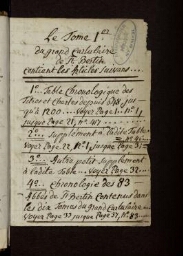 Le Tome 1er
du grand Cartulaire
de St Bertin
contient les Articles suivans...
1º. Table Chronologique des
Titres et Chartes depuis 648, jus
qu'à 1200..... Voyez Page 1. Nº 1
jusque Page 21, Nº 417.
2º.. Supplement à ladite Table
Voyez Page 22, jusque Page 31
3º... Autre petit Supplement
à ladite Table
4º... Chronologie des 83
Abbés de St Bertin Contenus dans
les dix Tomes du grand Cartulaire
Voyez Page 33 jusque Page 37, Nº 83